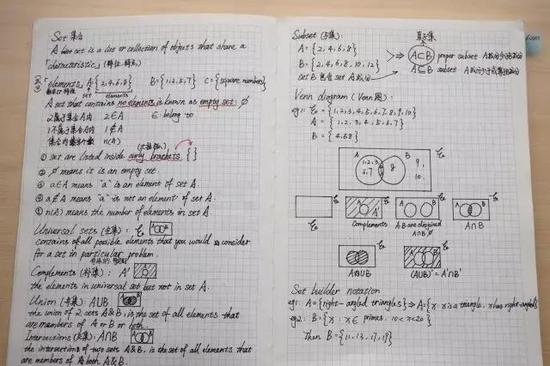 Set 集合
A set is a list or collection of objects that share a
characteristic
elements A{2,4,6,8} B={1,2,5,7} C={square numbers}
set elements
A set that contains no elements is known as empty set: ∅
2属于集合A内 2∈A ∈ belong to
1不属于集合A内 1∉A
n(A)
① set are listed inside curly brackets { }
② ∅ means it is an empty set.
③ a∈A means "a" is an element of set A.
④ a∉A means "a" is not an element of set A.
⑤ n(A) means the number of elements in set A.
Universal sets (全集):
contains of all possible elements that you would consider
for a set in particular problem.
Complements (补集): A'
the elements in universal set but not in set A.
Union (并集): A∪B
the union of 2 sets A&B, is the set of all elements that
are members of A or B or both
Intersections (交集): A∩B
the intersections of two sets A&B, is the set of all elements that
are members of both A&B.
Subset (子集) 真子集
A={2,4,6,8}
B={2,4,6,8,10,12}
A⊂B proper subset
A⊆B subset
set B 包含 set A
Venn diagram (Venn图)
eg1: ξ={1,2,3,4,5,6,7,8,9,10}
A={1,2,3,4,5,6,7}
B={4,5,8}
A B
1,2,3
6,7
8
9,
10.
A A'
A B
A B
Complements
A,B are disjoined
A∩B
A∩B ∅
A∪B
(A∪B)'=A'∩B'
Set builder notation
eg1: A={right-angled triangles} ⇒ A={x: x is a triangle, x has right-angled}
eg2: B={x: x∈primes, 10<x<20}
Then B={11,13,17,19}